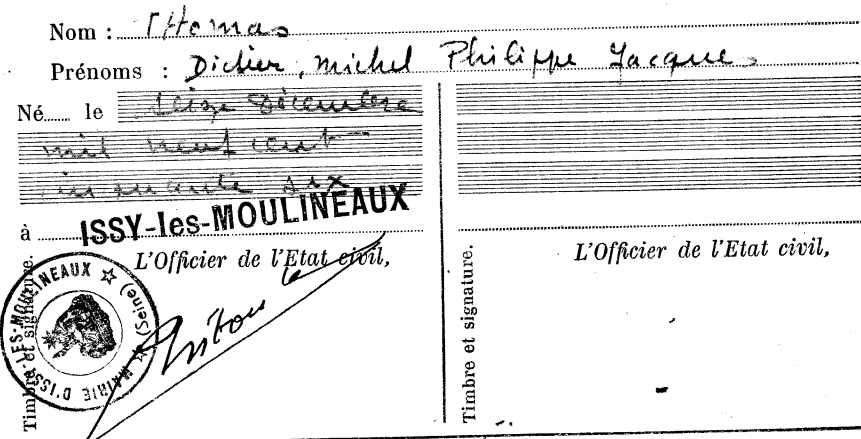 Nom : Thomas
Prénoms : Didier, Michel Philippe Jacques
Né le seize Décembre
mil neuf cent
cinquante six
à ISSY-les-MOULINEAUX
L'Officier de l'Etat civil,
Timbre et signature.
MAIRIE D'ISSY-LES-MOULINEAUX (Seine)
L'Officier de l'Etat civil,
Timbre et signature.